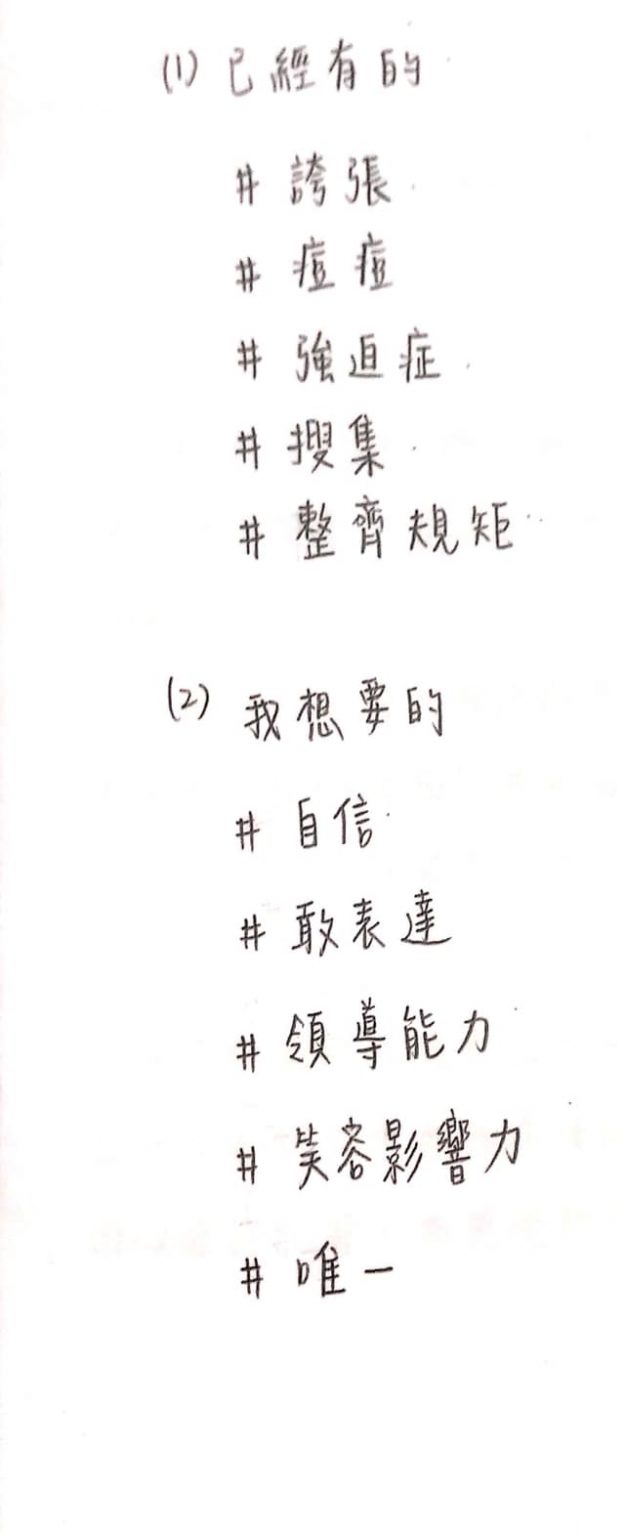 (1) 已經有的
# 誇張
# 痘痘
# 強迫症
# 搜集
# 整齊規矩
(2) 我想要的
# 自信
# 敢表達
# 領導能力
# 笑容影響力
# 唯一